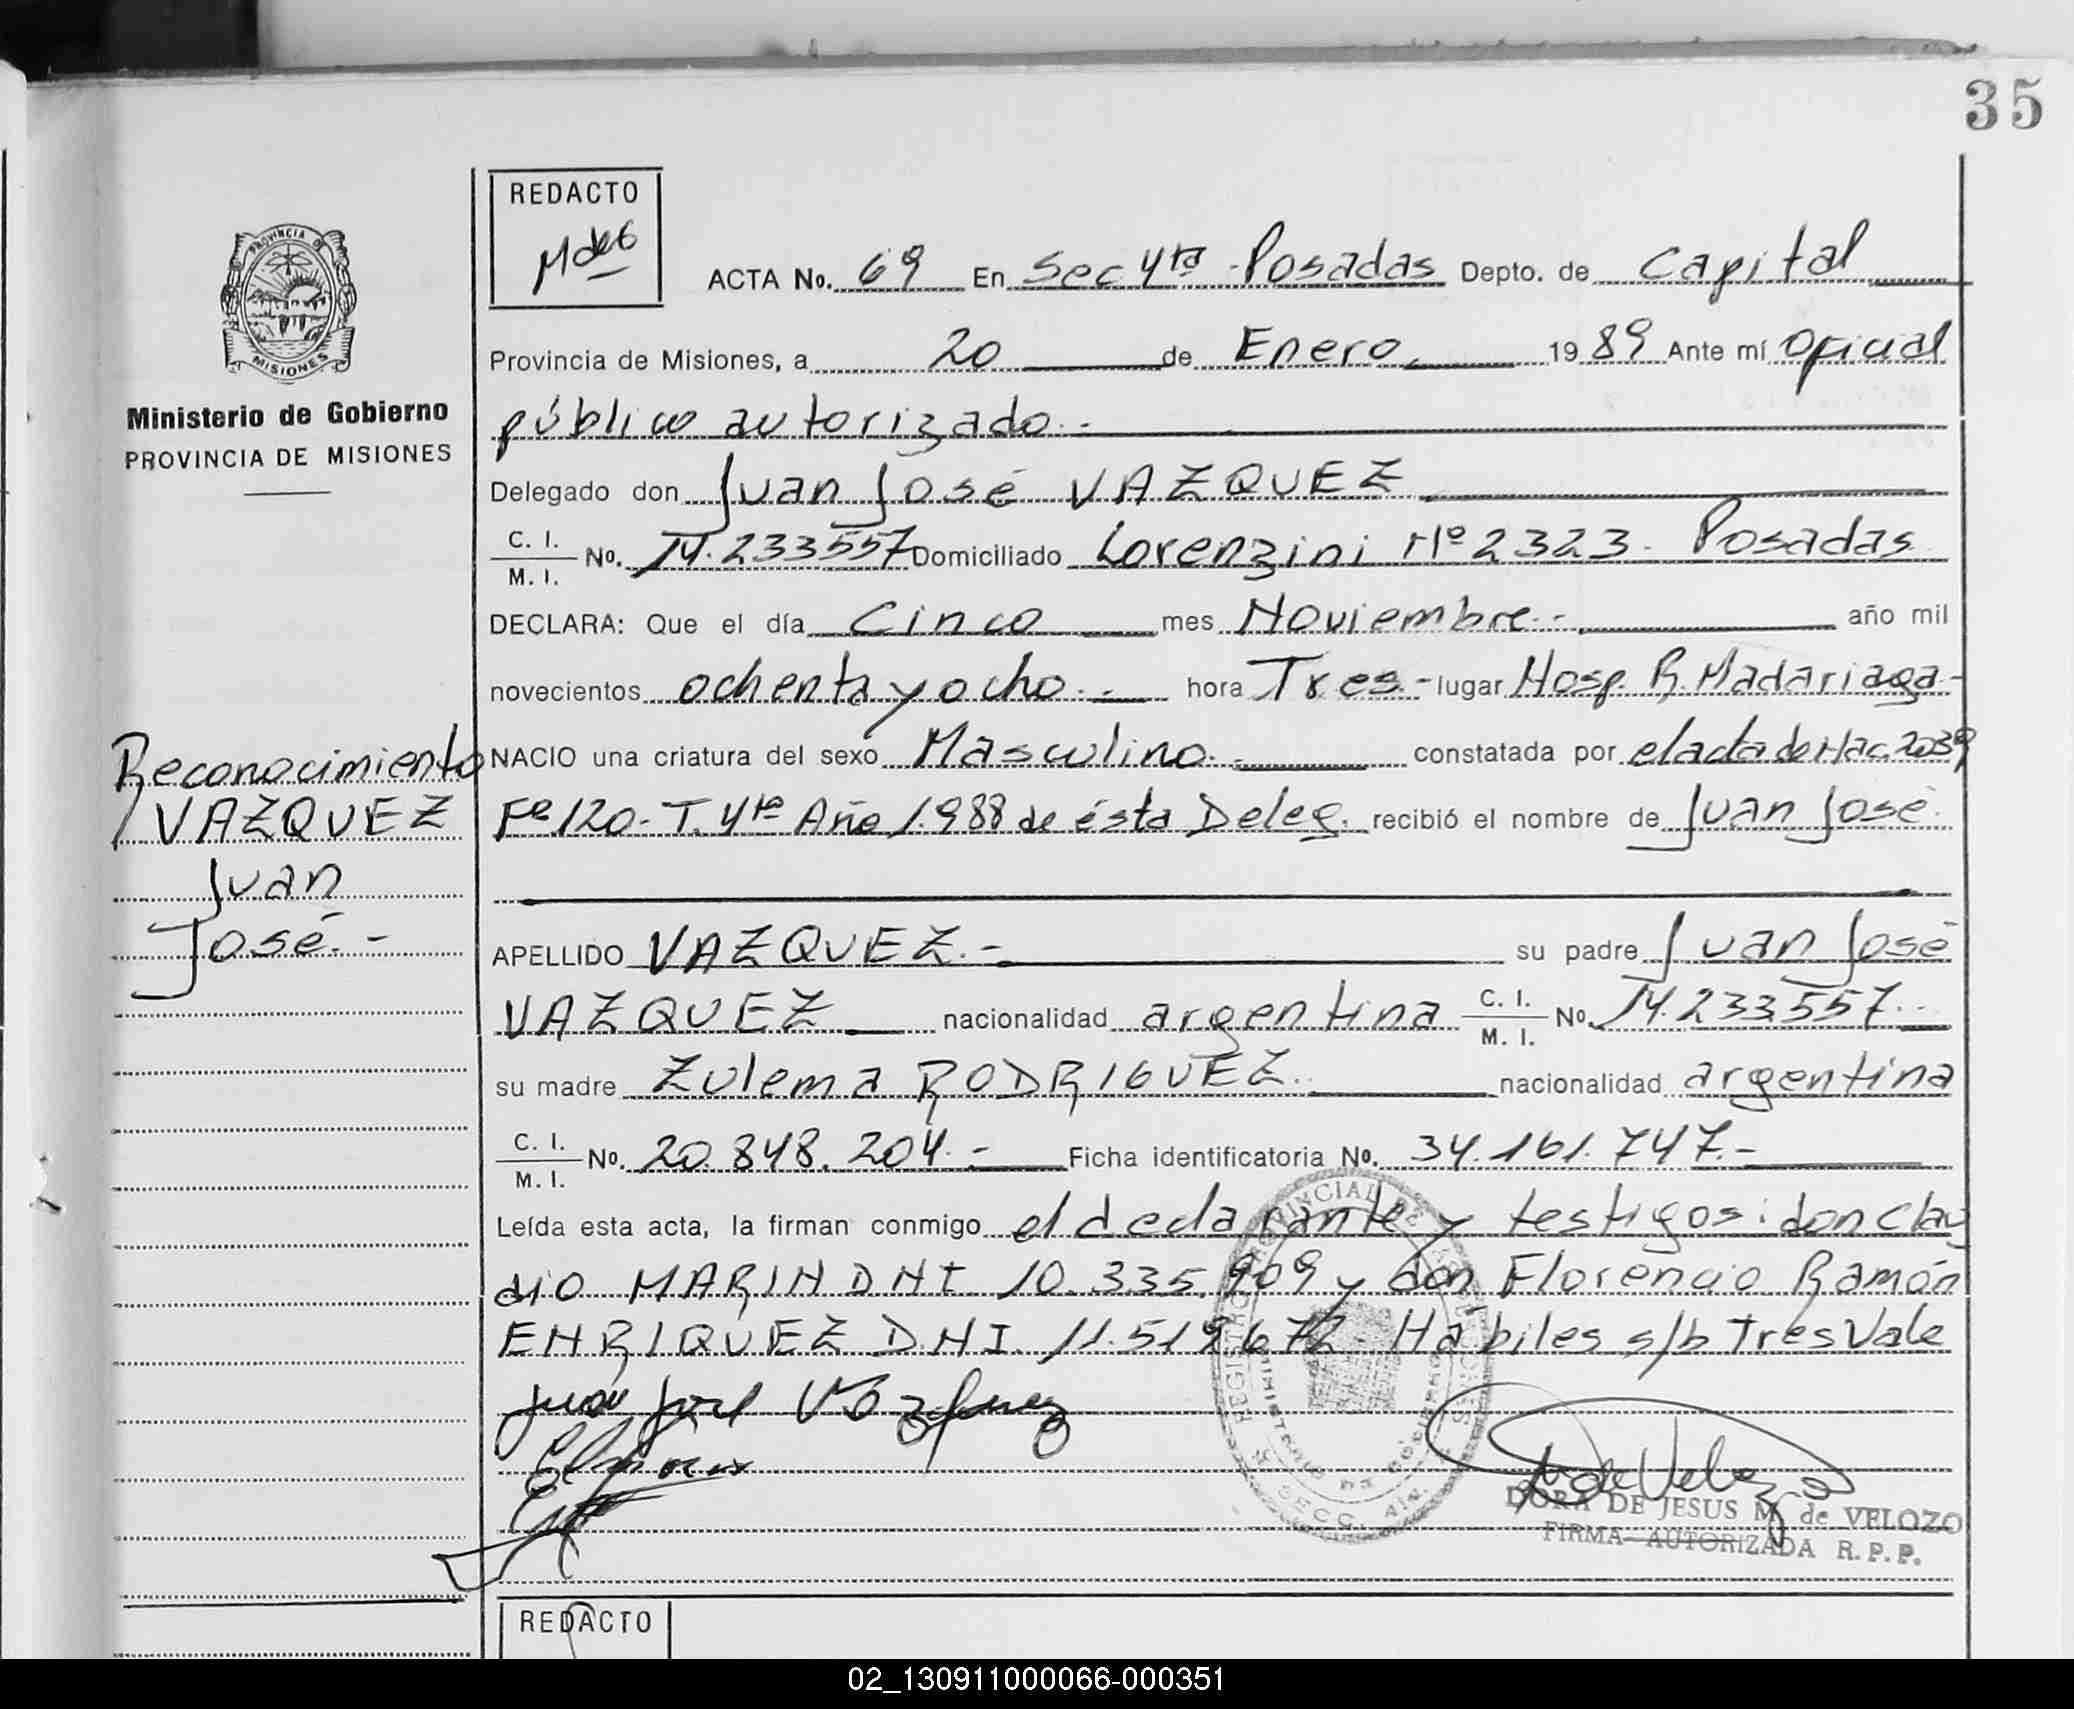 35
REDACTO
MdeG
PROVINCIA DE
MISIONES
Ministerio de Gobierno
PROVINCIA DE MISIONES
ACTA No. 69 En Sec 4ta Posadas Depto. de Capital
Provincia de Misiones, a 20 de Enero. 1989 Ante mí Oficial
público autorizado.-
Delegado don Juan José VAZQUEZ
C. I. / M. I. No. 14.233557 Domiciliado Lorenzini Nº 2323. Posadas
DECLARA: Que el día Cinco mes Noviembre.- año mil
novecientos ochenta y ocho.- hora Tres.- lugar Hosp. R. Madariaga-
NACIO una criatura del sexo Masculino.- constatada por el acta de Nac. 2039
Fº 120.- T. 4to Año 1.988 de ésta Deleg. recibió el nombre de Juan José.
Reconocimiento
VAZQUEZ
Juan
José.-
APELLIDO VAZQUEZ.- su padre Juan José
VAZQUEZ nacionalidad argentina C. I. / M. I. No. 14.233.557.-
su madre Zulema RODRIGUEZ. nacionalidad argentina
C. I. / M. I. No. 20.848.204.- Ficha identificatoria No. 34.161.747.-
Leída esta acta, la firman conmigo el declarante y testigos: don Clau
dio MARIN DNI 10.335.909 y don Florencio Ramón
ENRIQUEZ D.N.I. 11.519.672. Hábiles s/b Tres Vale
Juan José Vázquez
DORA DE JESUS M. de VELOZO
FIRMA AUTORIZADA R.P.P.
REDACTO
02_130911000066-000351